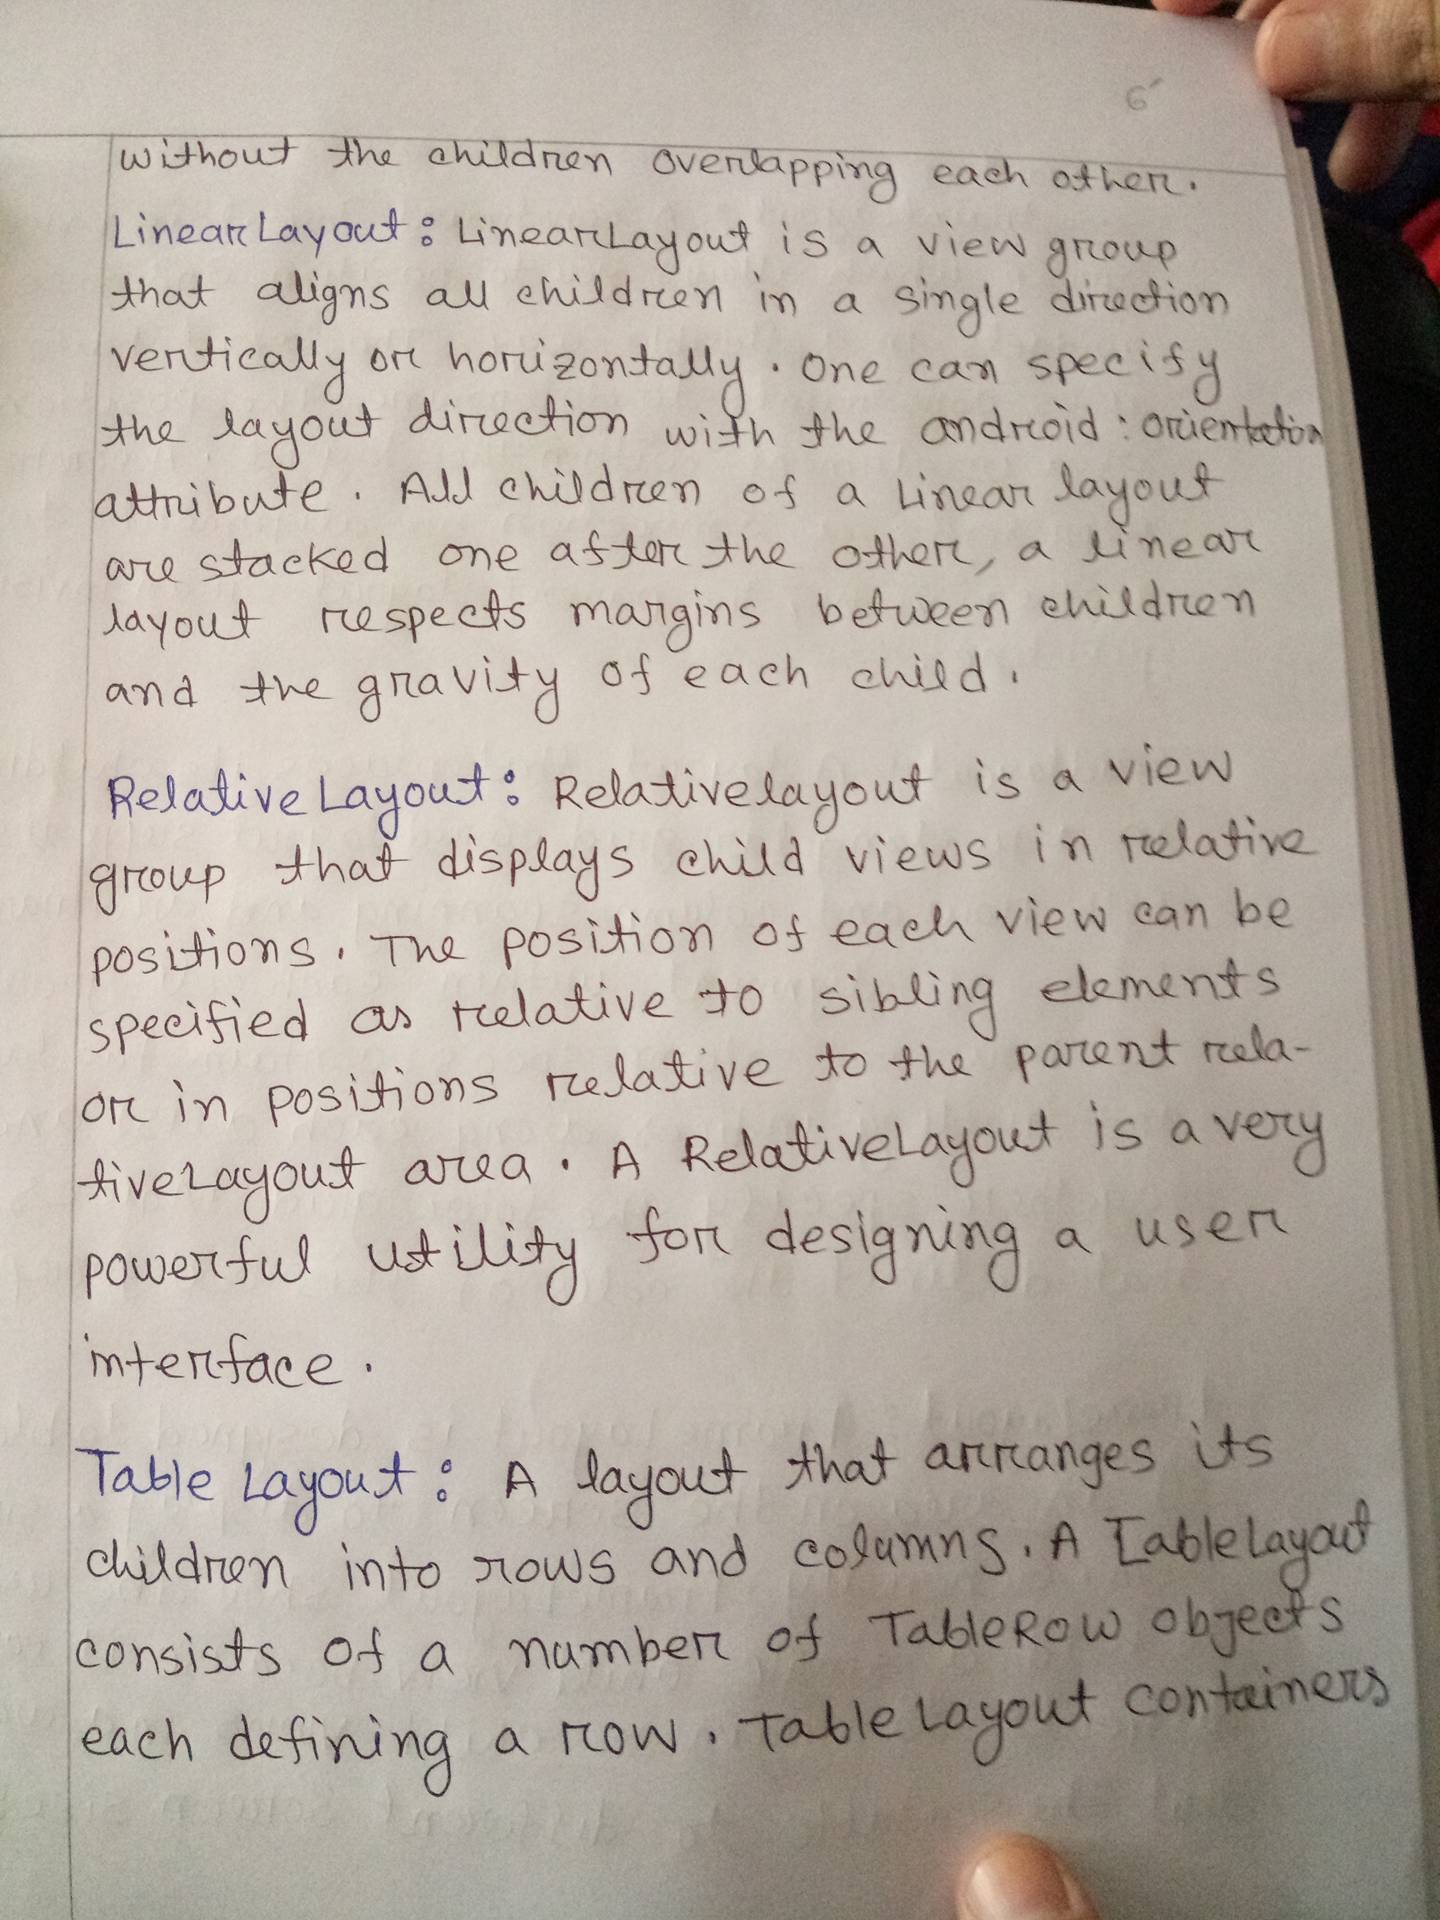 6
without the children overlapping each other.
LinearLayout: LinearLayout is a view group
that aligns all children in a single direction
vertically or horizontally. One can specify
the layout direction with the android: orientation
attribute. All children of a Linear layout
are stacked one after the other, a linear
layout respects margins between children
and the gravity of each child.
Relative Layout: Relativelayout is a view
group that displays child views in relative
positions. The position of each view can be
specified as relative to sibling elements
or in positions relative to the parent rela-
tiveLayout area. A RelativeLayout is a very
powerful utility for designing a user
interface.
Table Layout: A layout that arranges its
children into rows and columns. A TableLayout
consists of a number of TableRow objects
each defining a row. Table Layout containers